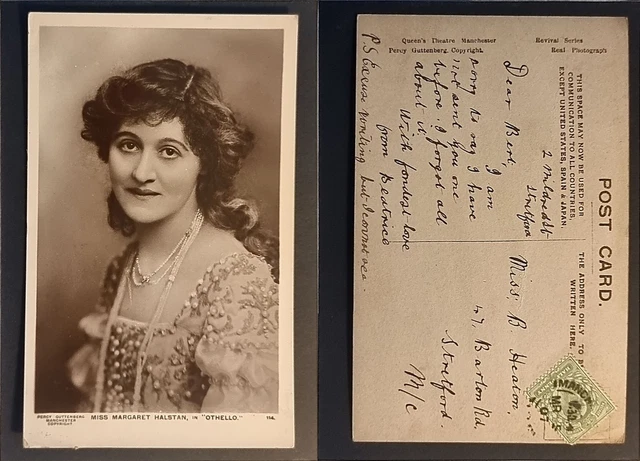 PERCY GUTTENBERG
MANCHESTER
COPYRIGHT
MISS MARGARET HALSTAN, IN "OTHELLO."
114.
Queen's Theatre Manchester
Percy Guttenberg. Copyright.
Revival Series
Real Photograph
POST CARD.
THIS SPACE MAY NOW BE USED FOR
COMMUNICATION TO ALL COUNTRIES,
EXCEPT UNITED STATES, SPAIN & JAPAN.
THE ADDRESS ONLY TO B
WRITTEN HERE.
2 Mildred St
Stretford
Dear Bert,
I am
sorry to say I have
not sent you one
before. I forgot all
about it.
With fondest love
from Beatrice
P.S. Excuse writing but I cannot see.
Miss. B Heaton
47. Barton Rd.
Stretford
M/C
MANCH
MR
07